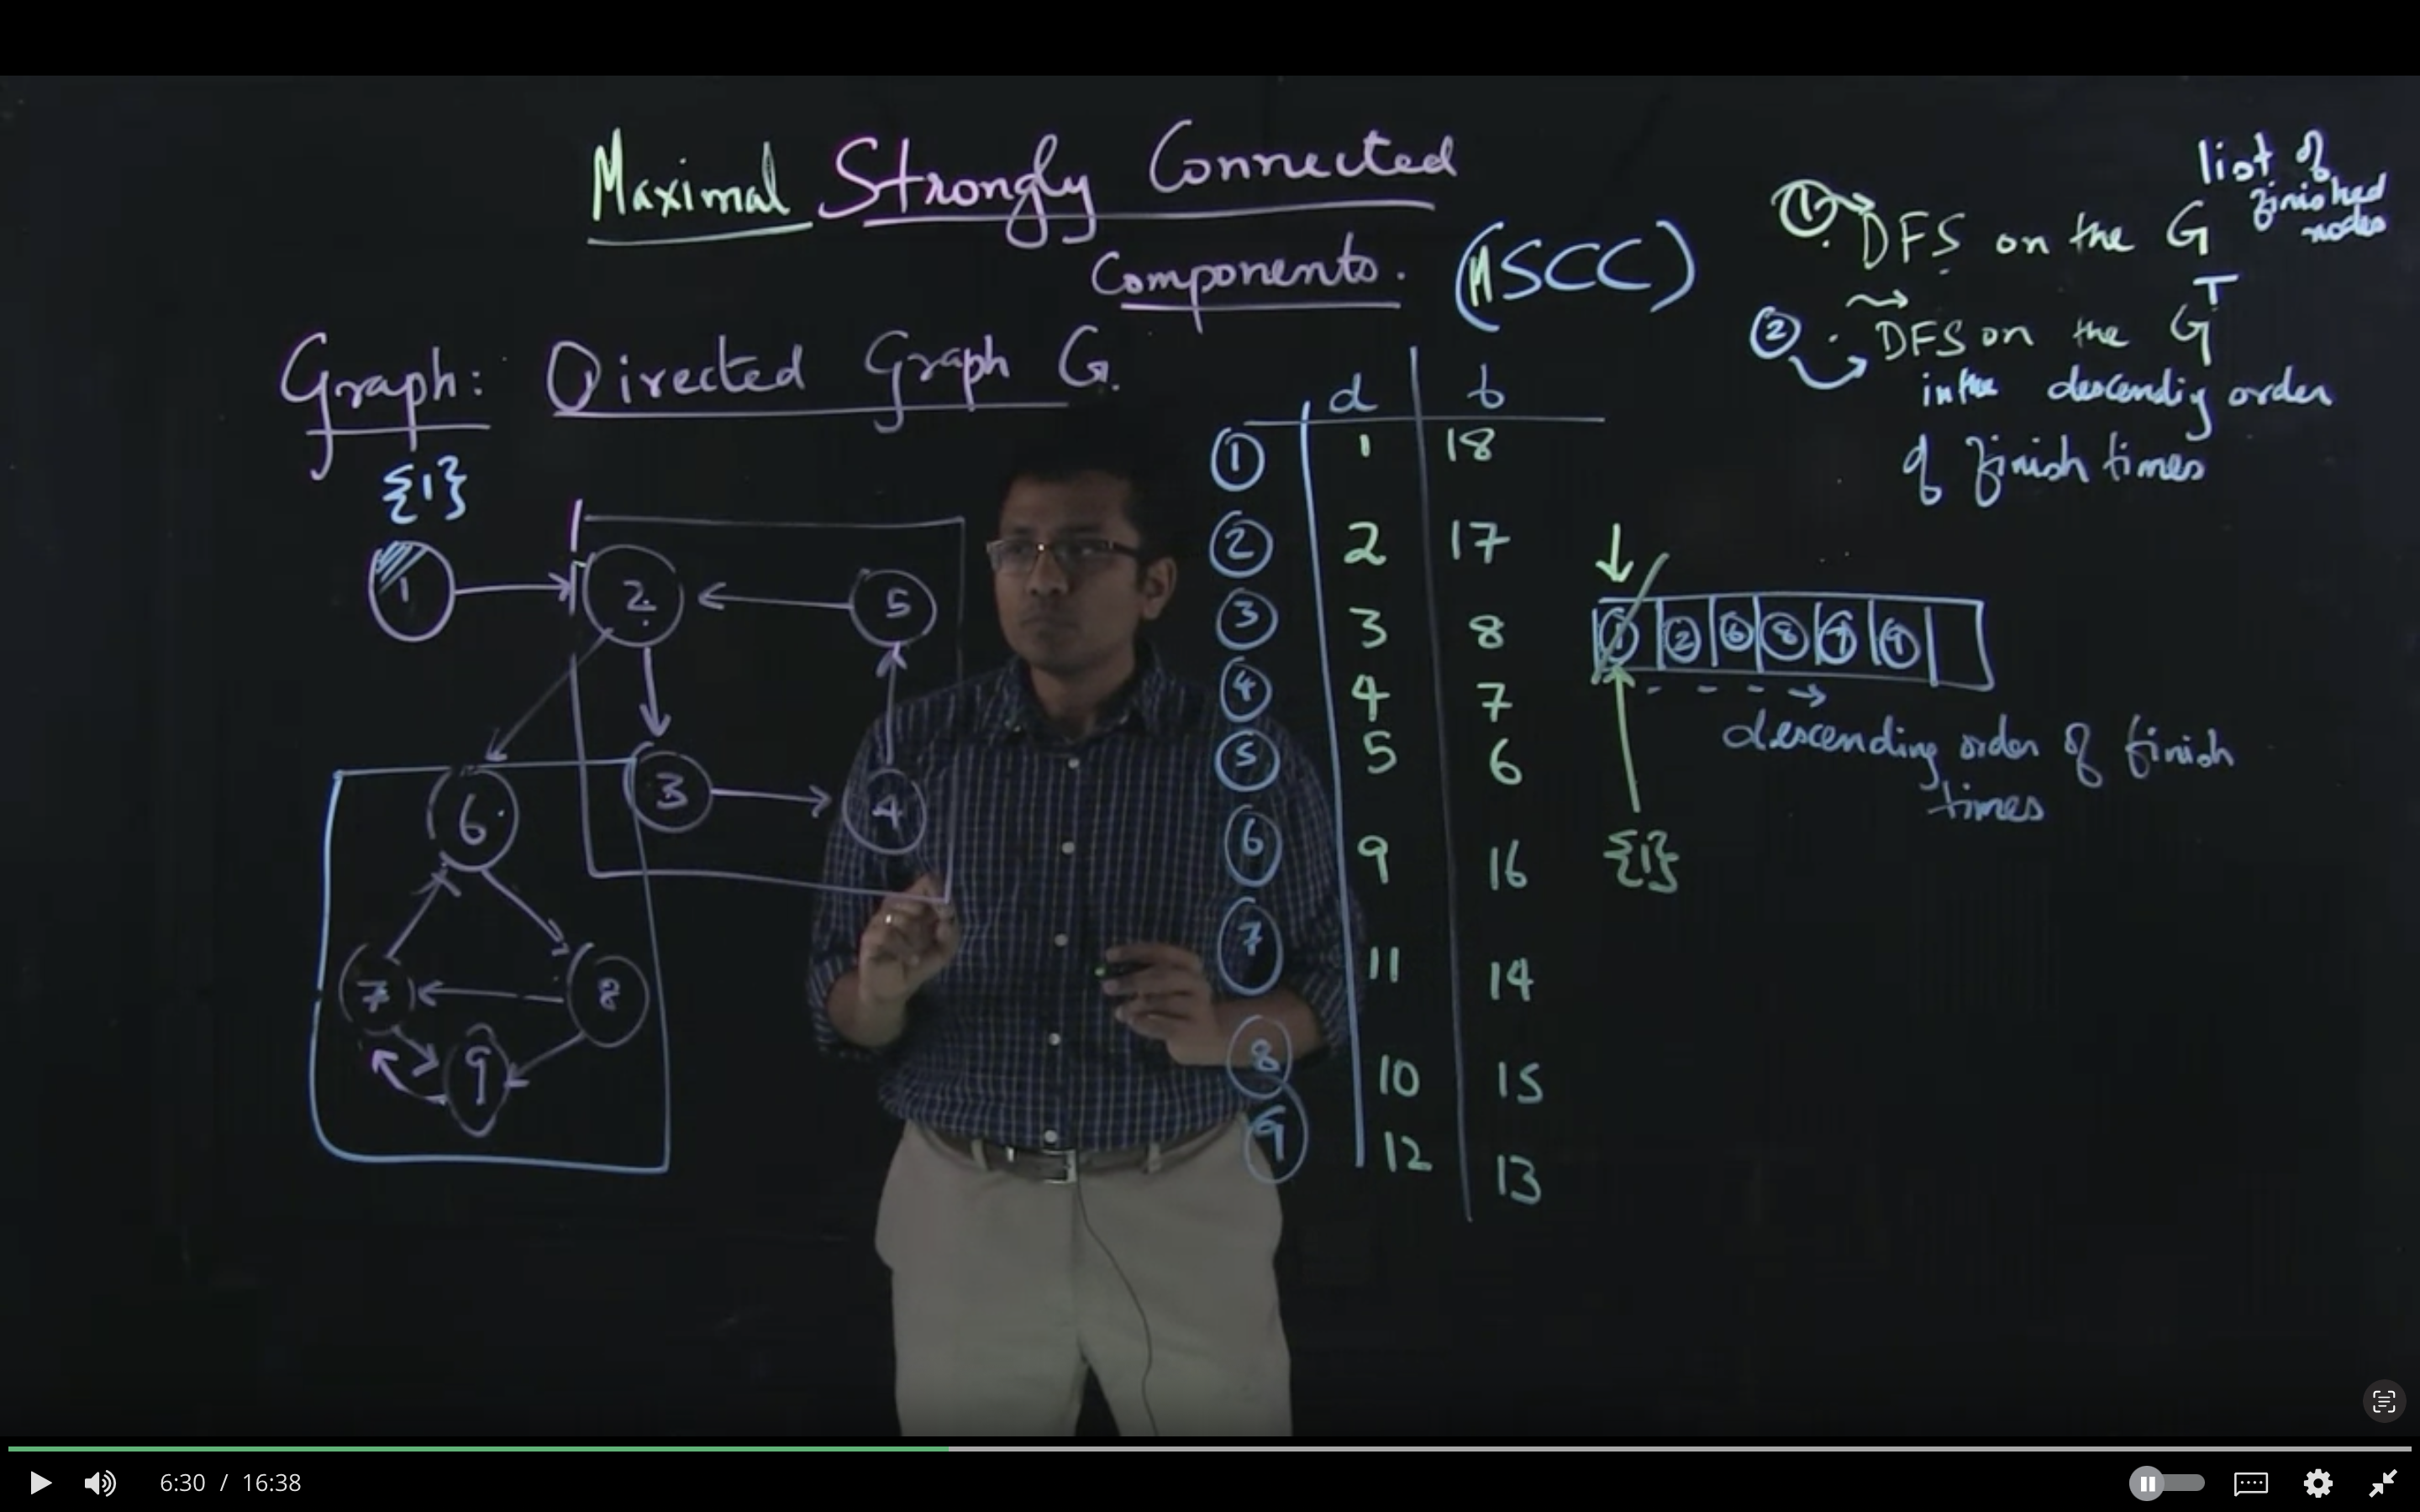 Maximal Strongly Connected
Components. (MSCC)
Graph: Directed Graph G.
{1}
1
2
5
3
4
6
7
8
9
d f
1 1 18
2 2 17
3 3 8
4 4 7
5 5 6
6 9 16
7 11 14
8 10 15
9 12 13
list of
finished
nodes
1 DFS on the G
2 DFS on the G^T
in the descendig order
of finish times
1 2 6 8 7 9
descending order of finish
times
{1}
6:30 / 16:38